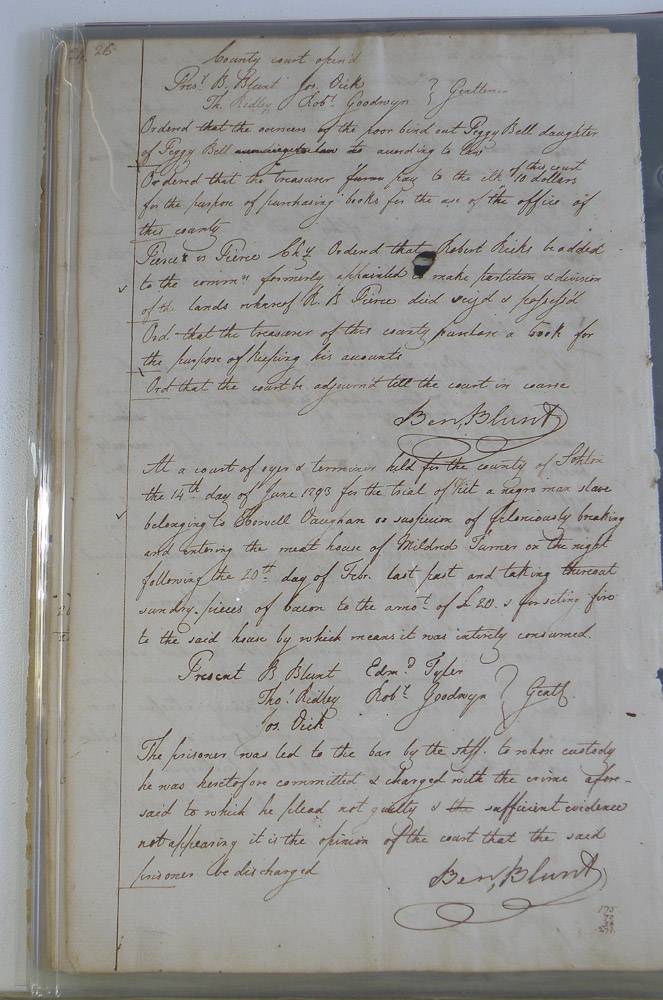 26
County court open'd
Pres.t B. Blunt Jos. Vick
Th. Ridley Rob.t Goodwyn } Gentlemen
Ordered that the overseers of the poor bind out Peggy Bell daughter
of Peggy Bell according to law
Ordered that the treasurer pay to the clk of this court 10 dollars
for the purpose of purchasing books for the use of the office of
this county
Pierce vs Pierce Ch.y Ordered that Robert Ricks be added
to the comm.rs formerly appointed to make partition & division
of the lands whereof R. B. Pierce died seiz'd & possess'd
Ord. that the treasurer of this county purchase a book for
the purpose of keeping his accounts
Ord that the court be adjourn'd till the court in course
Ben, Blunt
At a court of oyer & terminer held for the county of Sohton
the 14th day of June 1793 for the trial of Kit a negro man slave
belonging to Howell Vaughan on suspicion of feloniously breaking
and entering the meat house of Mildred Turner on the night
following the 20th day of Febr. last past and taking thereout
sundry pieces of bacon to the amo.t of £20. & for seting fire
to the said house by which means it was intirely consumed.
Present B Blunt Edm.d Tyler
Tho.s Ridley Rob.t Goodwyn } Gentl.
Jos. Vick
The prisoner was led to the bar by the shff. to whose custody
he was heretofore committed & charged with the crime afore-
said to which he plead not guilty & the sufficient evidence
not appearing it is the opinion of the court that the said
prisoner be discharged
Ben, Blunt